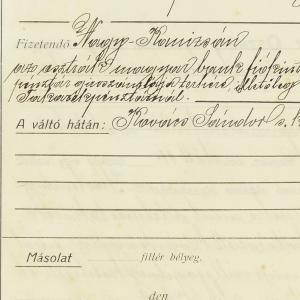 Fizetendő Nagy-Kanizsán
az osztrák magyar bank fiókint
pénztár illetőleg
Takarékpénztárnál.
A váltó hátán: Kovács Sándor s. k.
Másolat fillér bélyeg.
den